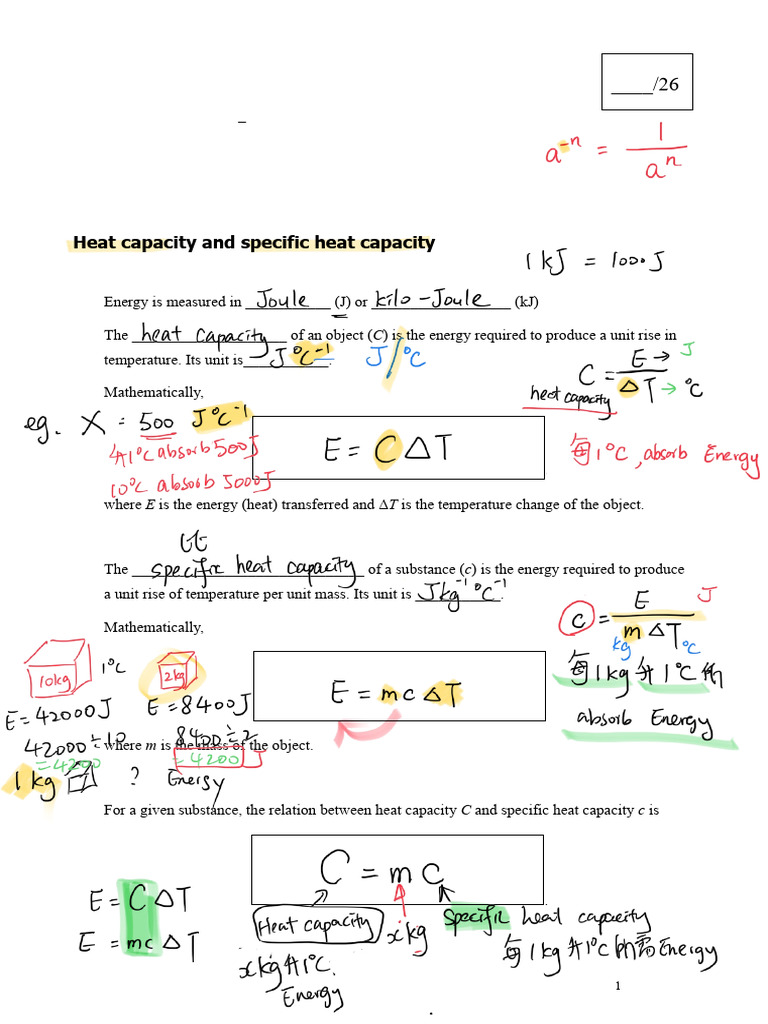 ____/26
a⁻ⁿ = 1/aⁿ
Heat capacity and specific heat capacity
1 kJ = 1000 J
Energy is measured in Joule (J) or kilo-Joule (kJ)
The heat capacity of an object (C) is the energy required to produce a unit rise in
temperature. Its unit is J°C⁻¹. J/°C
C = E/ΔT → J → °C
heat capacity
Mathematically,
eg. X = 500 J°C⁻¹
升1°C absorb 500J
10°C absorb 5000J
E = CΔT
每1°C, absorb Energy
where E is the energy (heat) transferred and ΔT is the temperature change of the object.
比
The specific heat capacity of a substance (c) is the energy required to produce
a unit rise of temperature per unit mass. Its unit is J kg⁻¹ °C⁻¹.
c = E/mΔT J kg °C
Mathematically,
每1kg升1°C所
absorb Energy
10kg 1°C 2kg
E = 42000J E = 8400J
E = mcΔT
42000÷10 8400÷2
=4200 =4200 J
where m is the mass of the object.
1 kg ? Energy
For a given substance, the relation between heat capacity C and specific heat capacity c is
C = mc
E = CΔT
E = mcΔT
Heat capacity x kg specific heat capacity
x kg升1°C. Energy
每1kg升1°C所需Energy
1